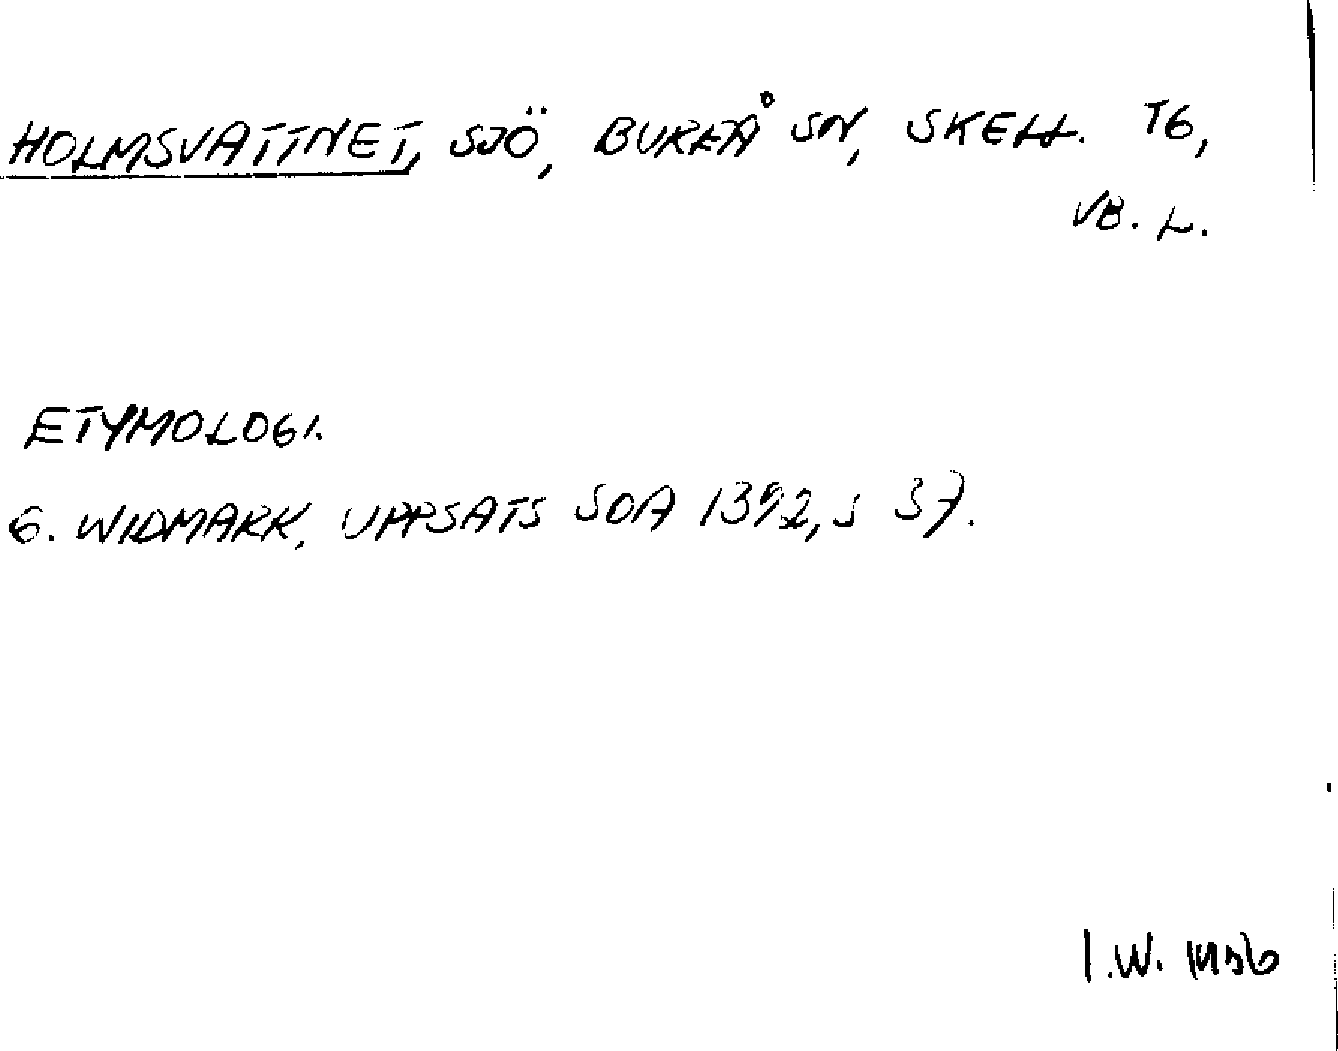 HOLMSVATTNET, SJÖ, BUREÅ SN, SKELL. TG,
VB. L.
ETYMOLOGI.
G. WIDMARK, UPPSATS SOA 1392, S 37.
I.W.